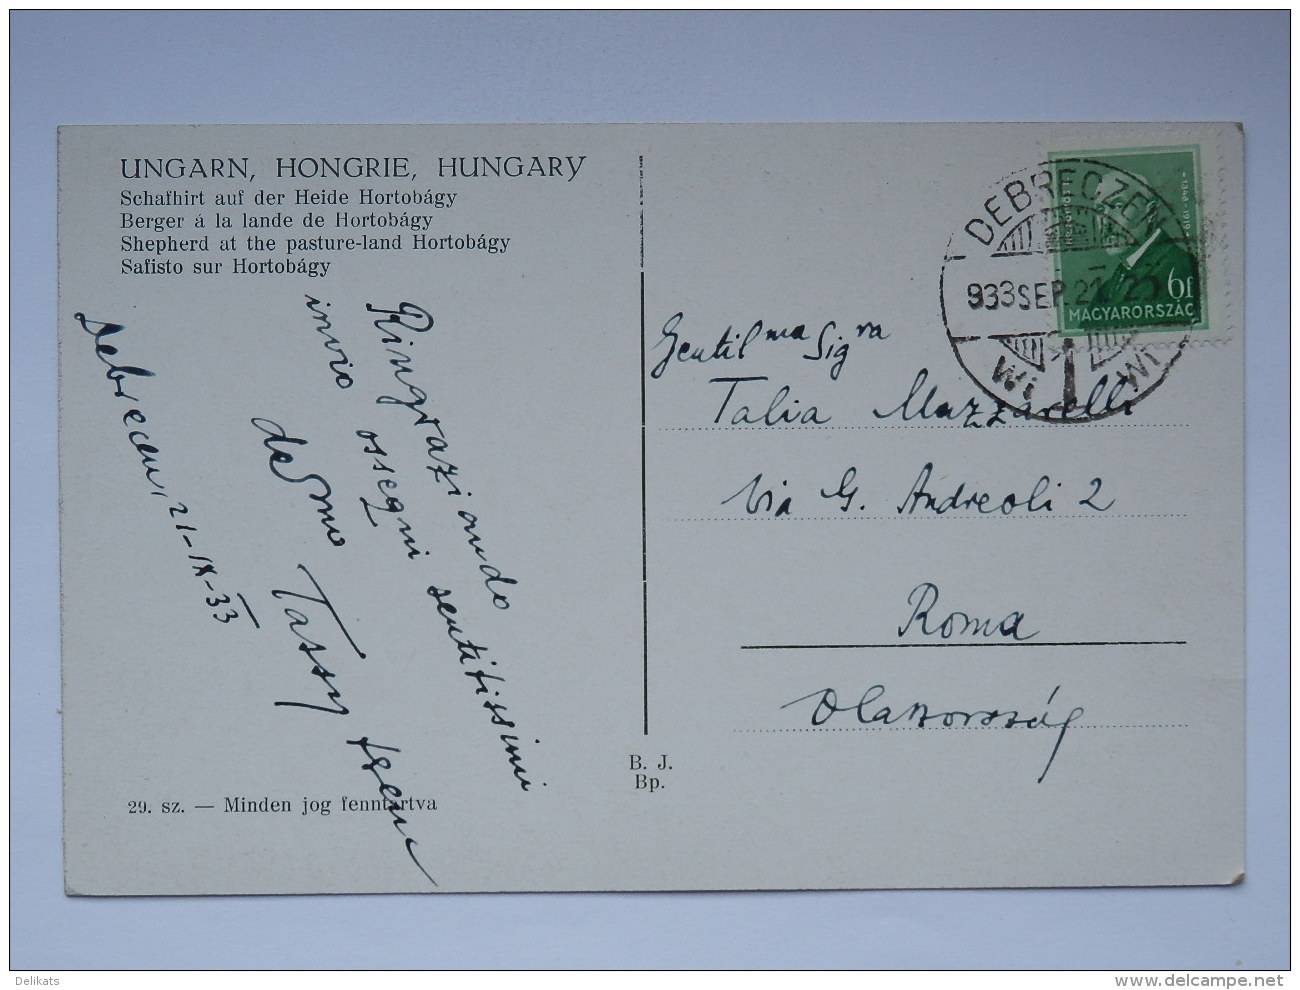 UNGARN, HONGRIE, HUNGARY
Schafhirt auf der Heide Hortobágy
Berger á la lande de Hortobágy
Shepherd at the pasture-land Hortobágy
Safisto sur Hortobágy
Debrecen, 21-IX-33
Ringraziando
invio ossequi sentitissimi
Tassy
29. sz. — Minden jog fenntartva
B. J.
Bp.
DEBRECZEN
933 SEP. 21
1848-1919
6f
MAGYARORSZÁG
Gentilma Sigra
Talia Mazzarelli
Via G. Andreoli 2
Roma
Olaszország
Delikats
www.delcampe.net